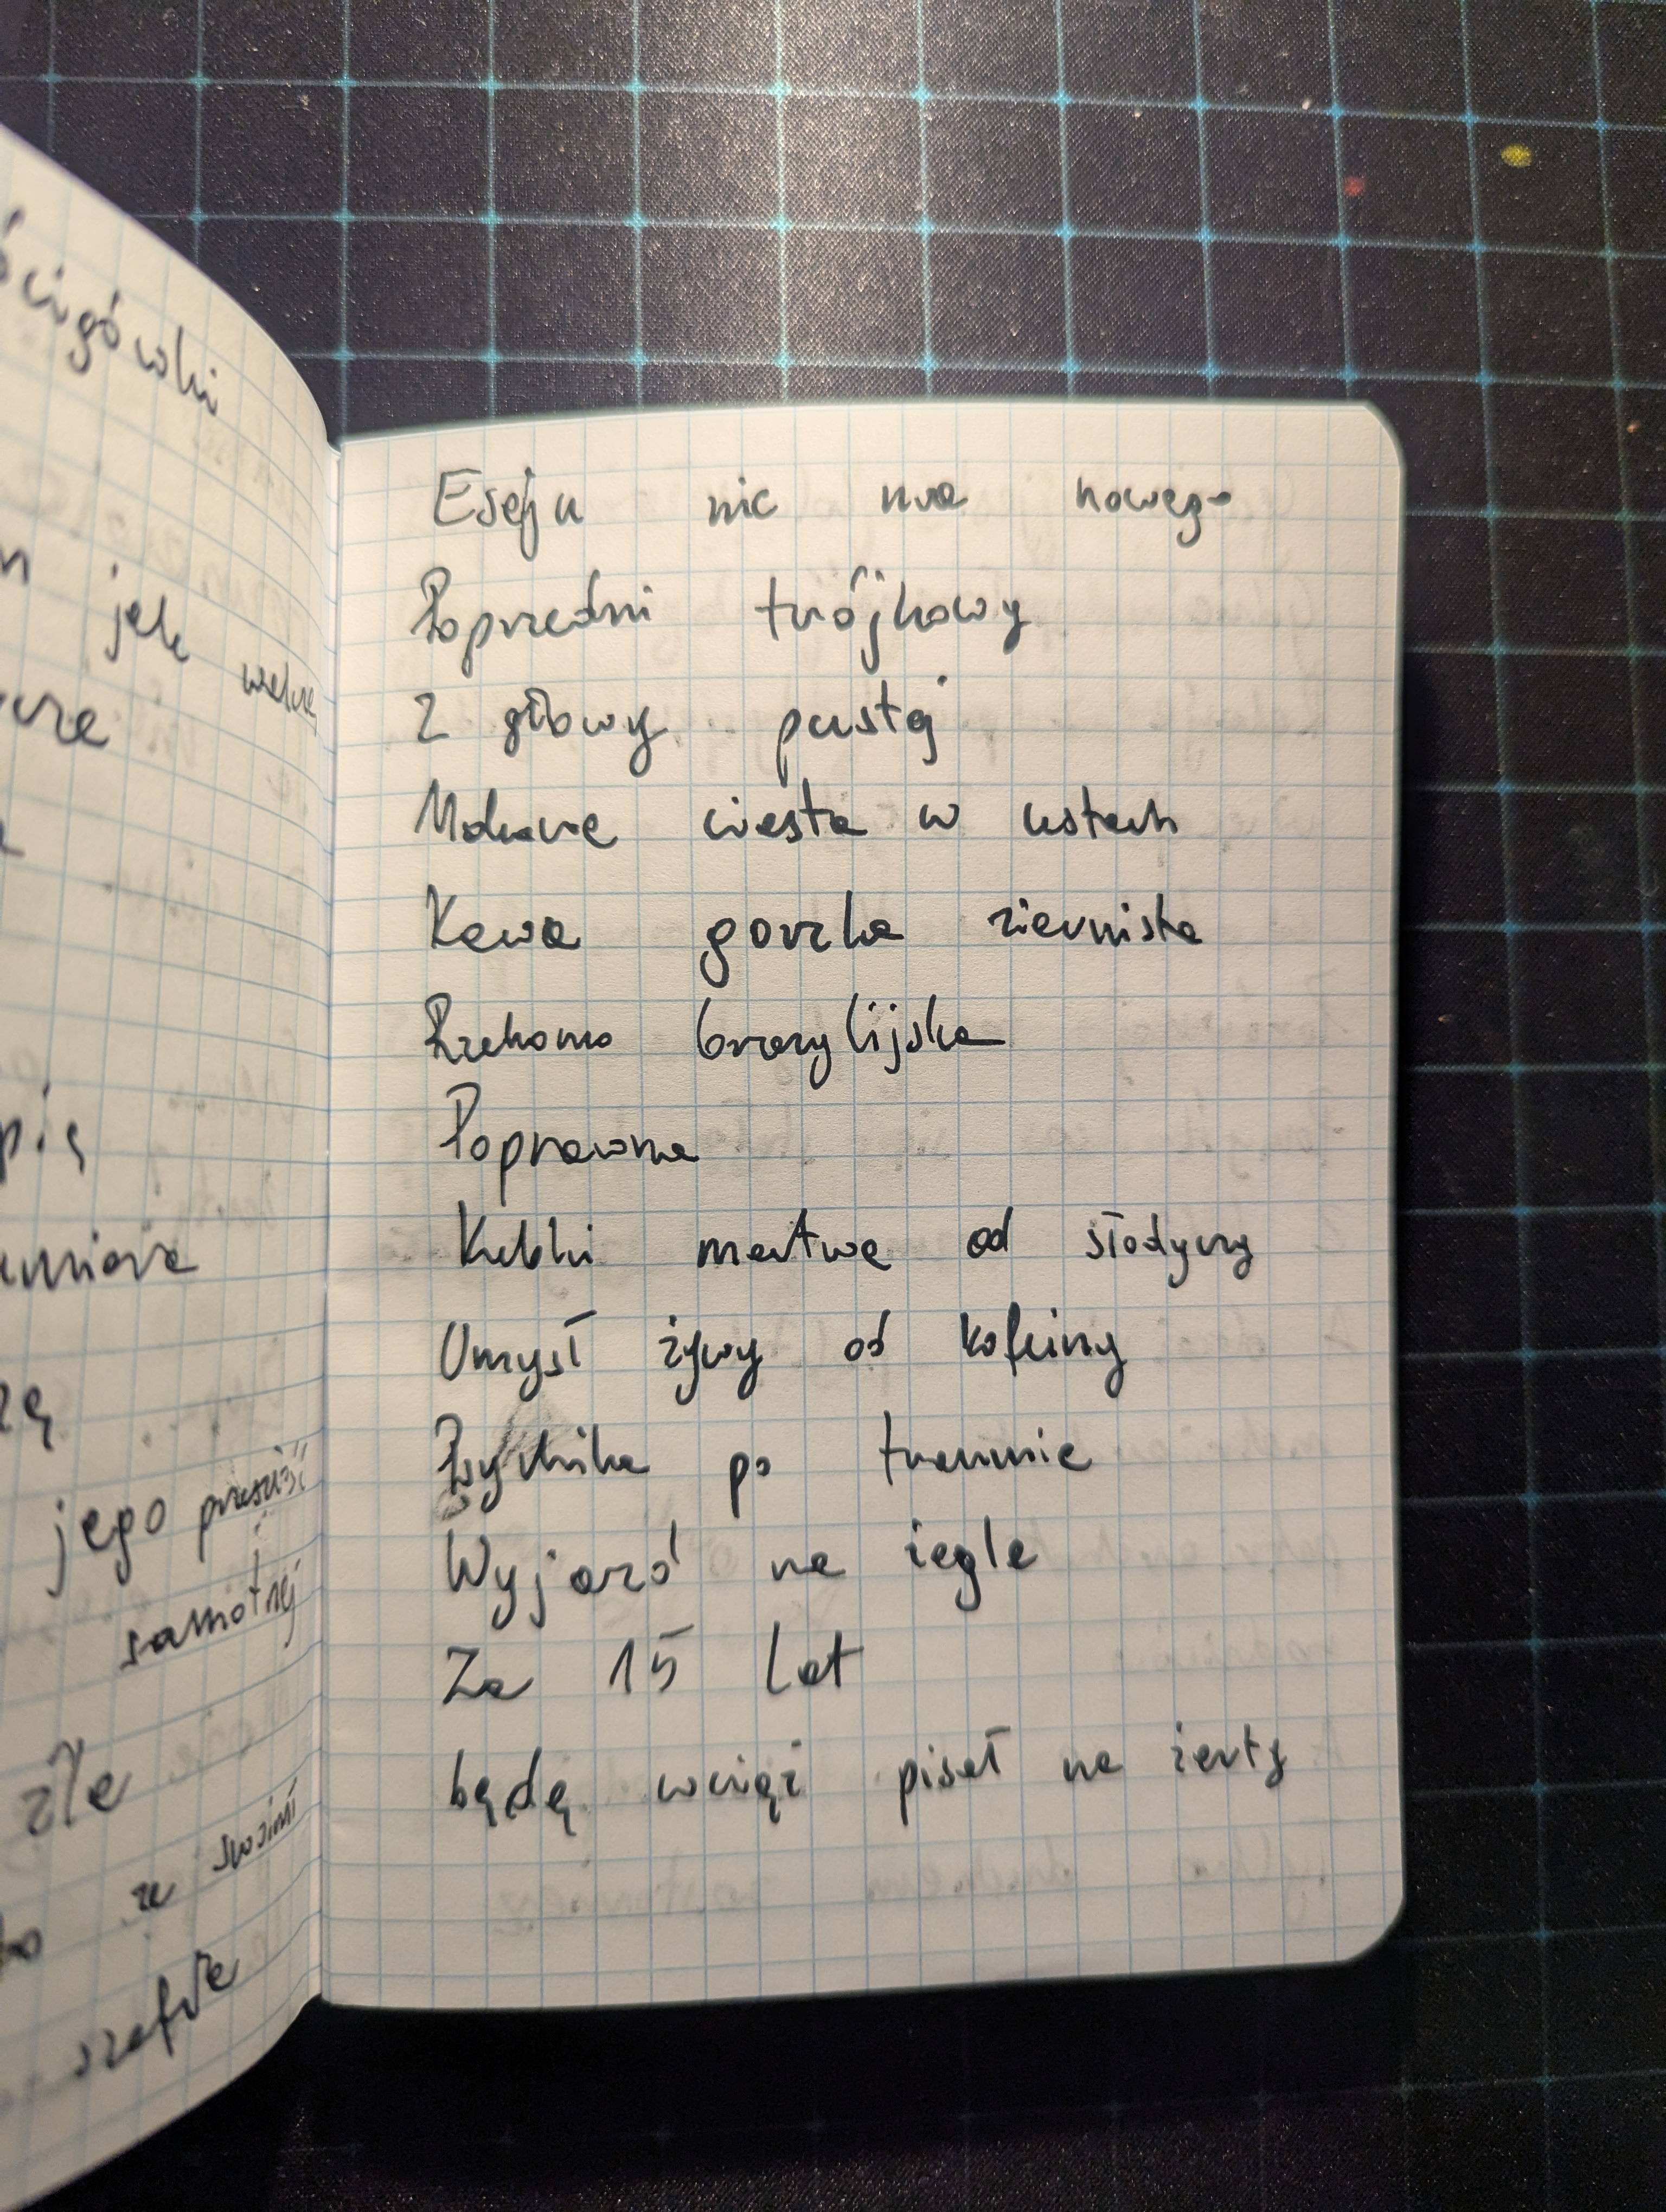 ścigówki
jak wełnę
pią
zą
jego przeszłść
samotnej
źle
ze swoimi
szafie
Eseju nic ma nowego
Poprzedni trójkowy
Z głowy pustej
Mdława ciasta w ustach
Kawa gorzka ziarnista
Rzekomo brazylijska
Poprawna
Kubki martwe od słodyczy
Umysł żywy od kofeiny
Psychika po traumie
Wyjazd na żagle
Za 15 lat
będę wciąż pisał na żarty